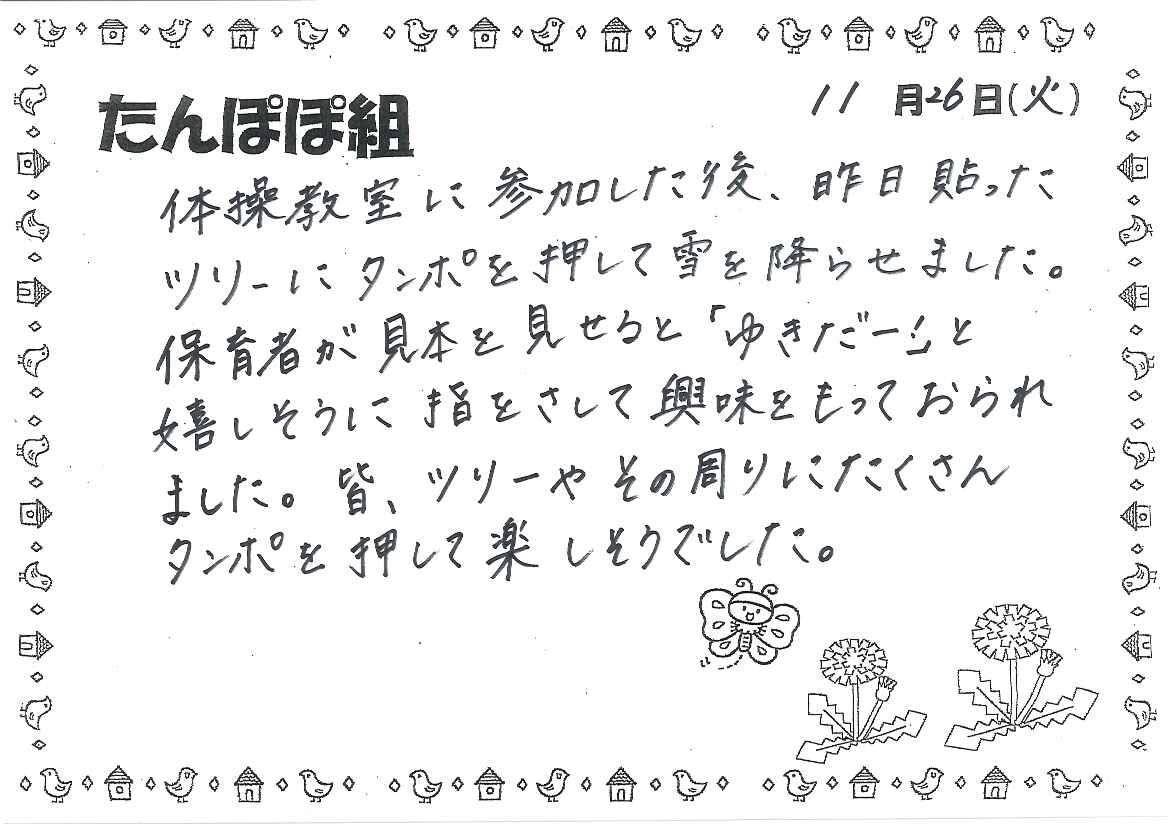 たんぽぽ組
11月26日(火)
体操教室に参加した後、昨日貼った
ツリーにタンポを押して雪を降らせました。
保育者が見本を見せると「ゆきだー!」と
嬉しそうに指をさして興味をもっておられ
ました。皆、ツリーやその周りにたくさん
タンポを押して楽しそうでした。